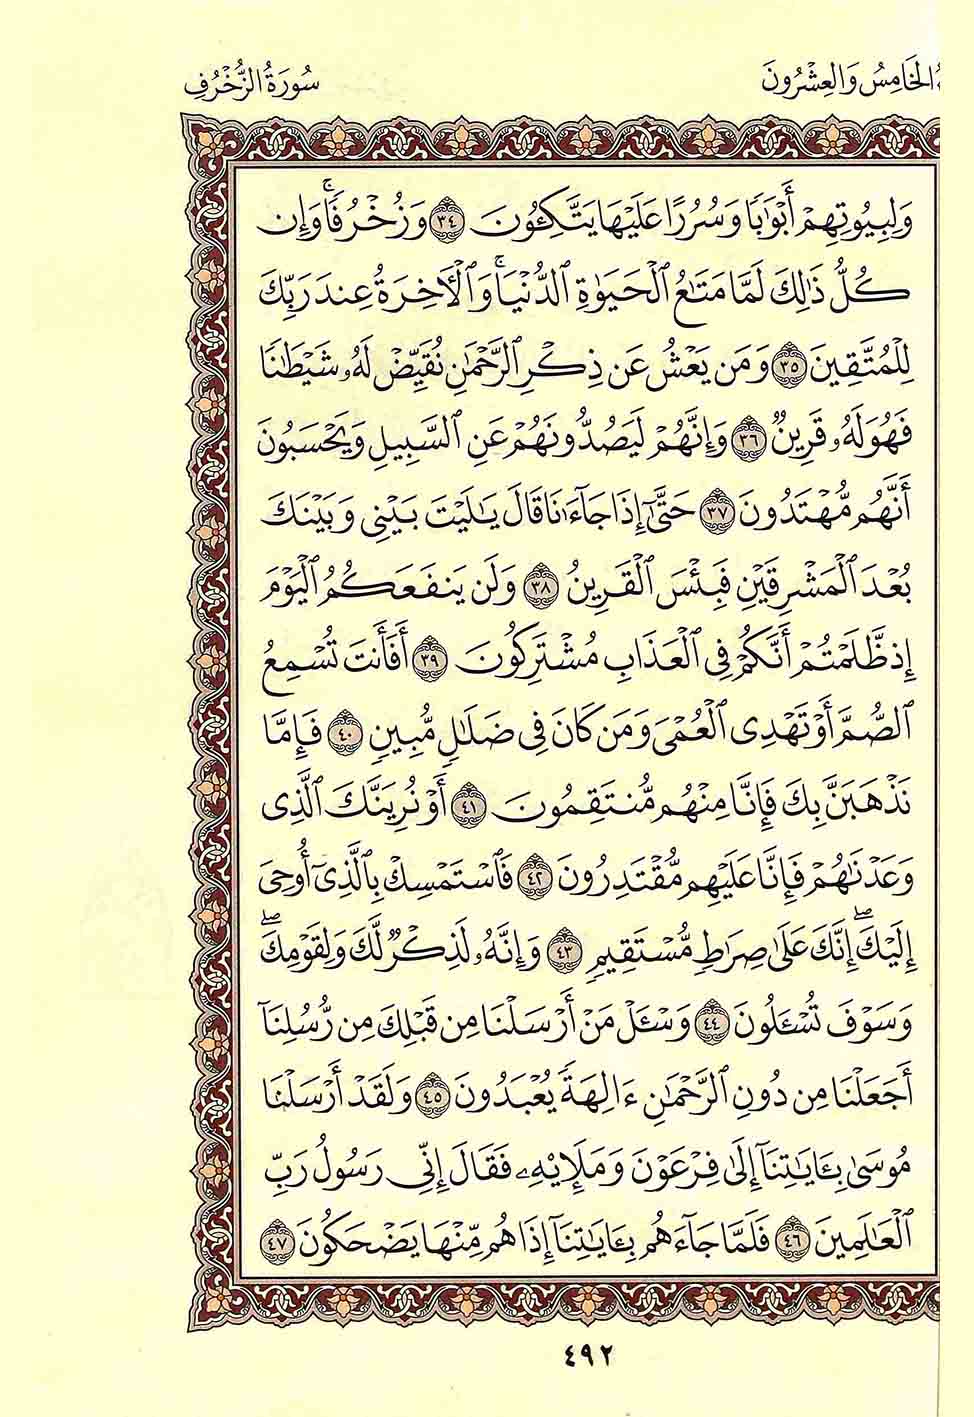 الخَامِسُ وَالعِشْرُونَ
سُورَةُ الزُّخْرُفِ
وَلِبُيُوتِهِمْ أَبْوَٰبًا وَسُرُرًا عَلَيْهَا يَتَّكِـُٔونَ ٣٤ وَزُخْرُفًاۚ وَإِن
كُلُّ ذَٰلِكَ لَمَّا مَتَٰعُ ٱلْحَيَوٰةِ ٱلدُّنْيَاۚ وَٱلْأَخِرَةُ عِندَ رَبِّكَ
لِلْمُتَّقِينَ ٣٥ وَمَن يَعْشُ عَن ذِكْرِ ٱلرَّحْمَٰنِ نُقَيِّضْ لَهُۥ شَيْطَٰنًا
فَهُوَ لَهُۥ قَرِينٌ ٣٦ وَإِنَّهُمْ لَيَصُدُّونَهُمْ عَنِ ٱلسَّبِيلِ وَيَحْسَبُونَ
أَنَّهُم مُّهْتَدُونَ ٣٧ حَتَّىٰٓ إِذَا جَآءَٰنَا قَالَ يَٰلَيْتَ بَيْنِي وَبَيْنَكَ
بُعْدَ ٱلْمَشْرِقَيْنِ فَبِئْسَ ٱلْقَرِينُ ٣٨ وَلَن يَنفَعَكُمُ ٱلْيَوْمَ
إِذ ظَّلَمْتُمْ أَنَّكُمْ فِي ٱلْعَذَابِ مُشْتَرِكُونَ ٣٩ أَفَأَنتَ تُسْمِعُ
ٱلصُّمَّ أَوْ تَهْدِي ٱلْعُمْيَ وَمَن كَانَ فِي ضَلَٰلٍ مُّبِينٍ ٤٠ فَإِمَّا
نَذْهَبَنَّ بِكَ فَإِنَّا مِنْهُم مُّنتَقِمُونَ ٤١ أَوْ نُرِيَنَّكَ ٱلَّذِي
وَعَدْنَٰهُمْ فَإِنَّا عَلَيْهِم مُّقْتَدِرُونَ ٤٢ فَٱسْتَمْسِكْ بِٱلَّذِيٓ أُوحِيَ
إِلَيْكَۖ إِنَّكَ عَلَىٰ صِرَٰطٍ مُّسْتَقِيمٍ ٤٣ وَإِنَّهُۥ لَذِكْرٌ لَّكَ وَلِقَوْمِكَۖ
وَسَوْفَ تُسْـَٔلُونَ ٤٤ وَسْـَٔلْ مَنْ أَرْسَلْنَا مِن قَبْلِكَ مِن رُّسُلِنَآ
أَجَعَلْنَا مِن دُونِ ٱلرَّحْمَٰنِ ءَالِهَةً يُعْبَدُونَ ٤٥ وَلَقَدْ أَرْسَلْنَا
مُوسَىٰ بِـَٔايَٰتِنَآ إِلَىٰ فِرْعَوْنَ وَمَلَإِيْهِۦ فَقَالَ إِنِّي رَسُولُ رَبِّ
ٱلْعَٰلَمِينَ ٤٦ فَلَمَّا جَآءَهُم بِـَٔايَٰتِنَآ إِذَا هُم مِّنْهَا يَضْحَكُونَ ٤٧
٤٩٢